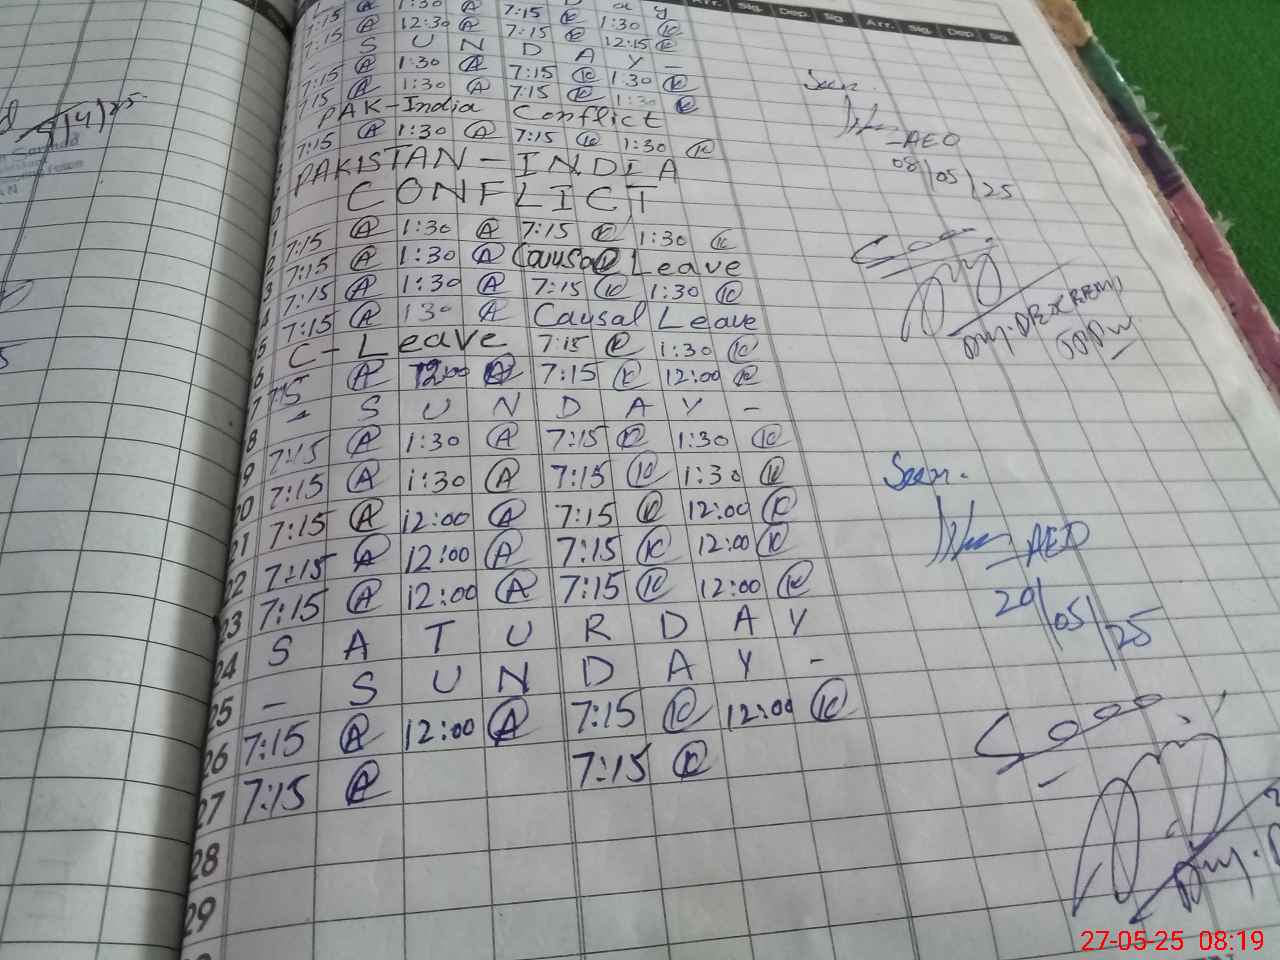 Arr. Sig. Dep. Sig. Arr. Sig. Dep. Sig.
7:15 A 1:30 A 7:15 K 1:30 K
7:15 A 12:30 A 7:15 K 12:15 K
- S U N D A Y -
7:15 A 1:30 A 7:15 K 1:30 K
7:15 A 1:30 A 7:15 K 1:30 K
PAK-India Conflict
7:15 A 1:30 A 7:15 K 1:30 K
PAKISTAN-INDIA
CONFLICT
7:15 A 1:30 A 7:15 K 1:30 K
7:15 A 1:30 A Causal Leave
7:15 A 1:30 A 7:15 K 1:30 K
7:15 A 130 A Causal Leave
C-Leave 7:15 K 1:30 K
7:15 A 12:00 A 7:15 K 12:00 K
- S U N D A Y -
7:15 A 1:30 A 7:15 K 1:30 K
7:15 A 1:30 A 7:15 K 1:30 K
7:15 A 12:00 A 7:15 K 12:00 K
21 7:15 A 12:00 A 7:15 K 12:00 K
22 7:15 A 12:00 A 7:15 K 12:00 K
23 S A T U R D A Y
24 - S U N D A Y -
25 7:15 A 12:00 A 7:15 K 12:00 K
26 7:15 A 7:15 K
27
28
29
Seen.
AEO
08/05/25
Seen.
AEO
20/05/25
27-05-25 08:19